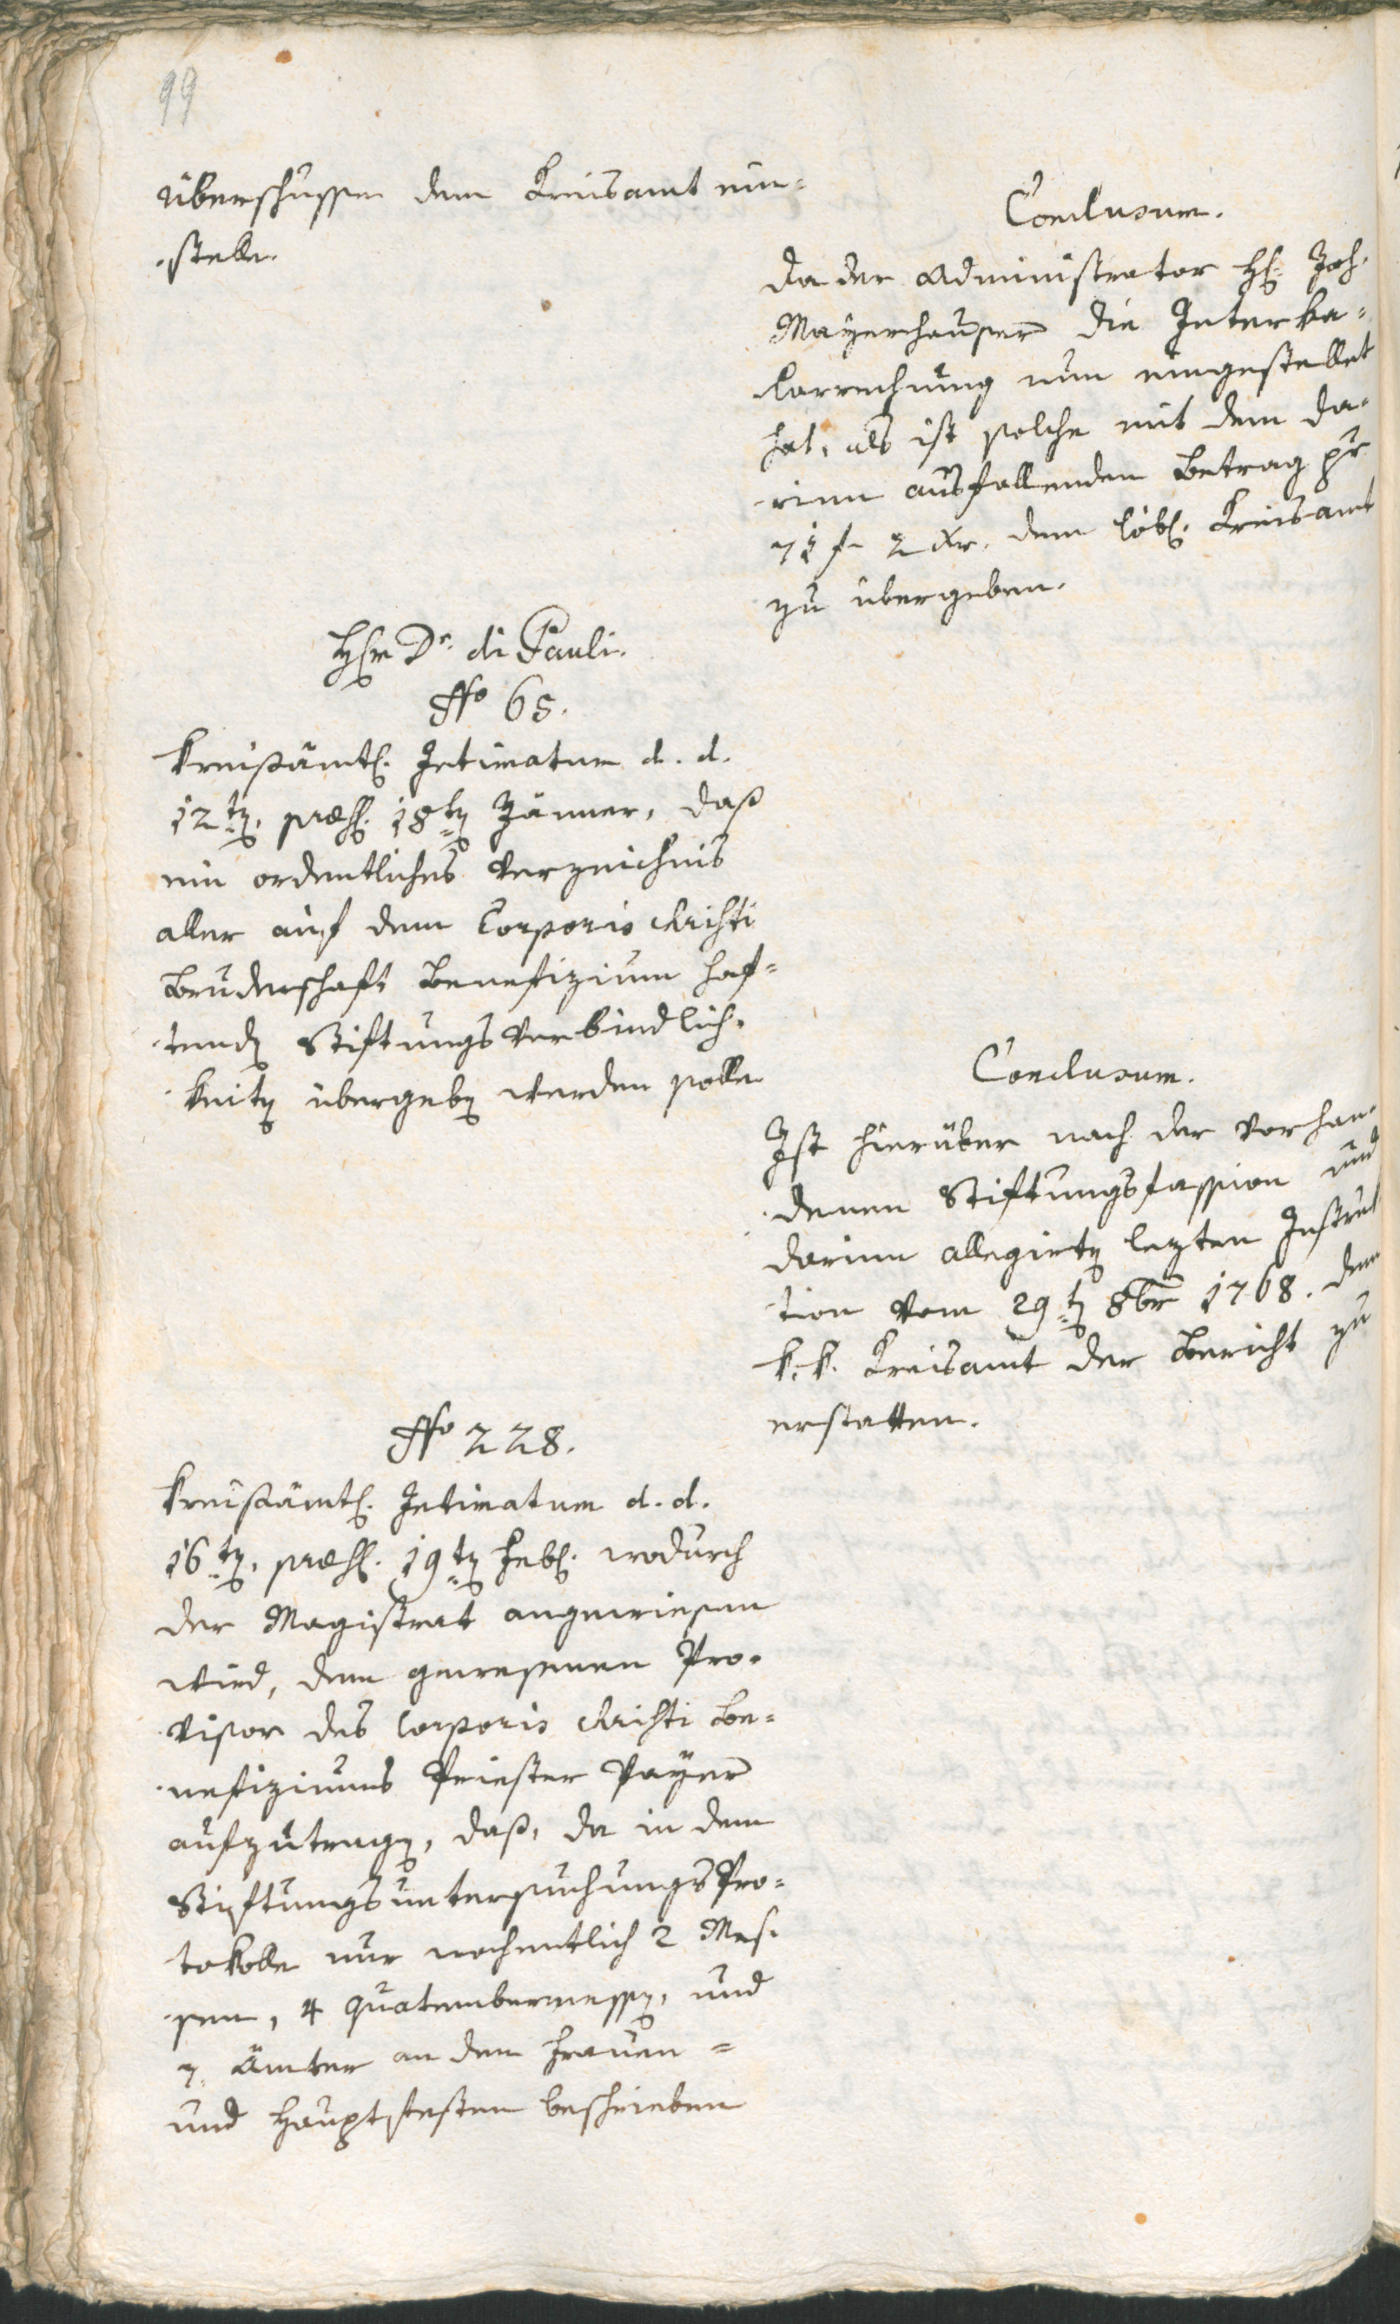 99
überschussen dem Creisamt ein-
stelle.
Conclusum.
Da der Administrator H. Joh.
Mayerhauser die Interka-
larrechnung nun eingestellet
hat, als ist solche mit dem da-
rinn ausfallenden Betrag pr
71 f 2 xr. dem löbl. Creisamt
zu übergeben.
Herr Dr. di Pauli.
No 65.
Kreisämtl. Intimatum d. d.
12ten, præs. 18ten Jänner, daß
ein ordentliches Verzeichnis
aller auf dem Corporis Christi
Bruderschaft Benefizium haf-
tenden Stiftungsverbindlich-
keiten übergeben werden solle
Conclusum.
Ist hierüber nach der vorhan-
denen Stiftungsfassion und
darinn allegirten lezten Instruk
tion vom 29ten 8br 1768. dem
k. k. Creisamt der Bericht zu
erstatten.
No 228.
Kreisämtl. Intimatum d. d.
16ten, præs. 19ten Febr. wodurch
der Magistrat angewiesen
wird, dem gewesenen Pro-
visor des Corporis Christi Be-
nefiziums Priester Payer
aufzutragen, daß, da in dem
Stiftungsuntersuchungs Pro-
tokolle nur wochentlich 2 Mes-
sen, 4 Quatembermessen, und
7. Ämter an dem Frauen-
und Hauptfesten beschrieben